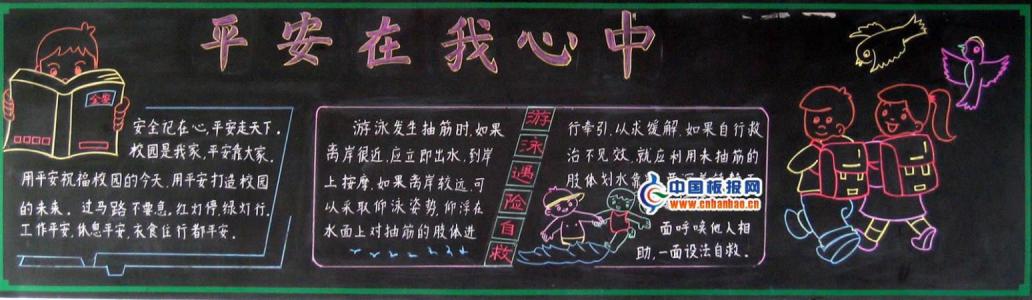 平安在我心中
全安
安全记在心,平安走天下.
校园是我家,平安靠大家.
用平安祝福校园的今天,用平安打造校园
的未来。过马路不要急.红灯停,绿灯行.
工作平安,休息平安,衣食住行都平安.
游泳发生抽筋时,如果
离岸很近,应立即出水,到岸
上按摩.如果离岸较远,可
以采取仰泳姿势,仰浮在
水面上对抽筋的肢体进
游泳遇险自救
行牵引,以求缓解.如果自行救
治不见效,就应利用未抽筋的
肢体划水靠
面呼唤他人相
助,一面设法自救.
中国板报网
www.cnbanbao.cn